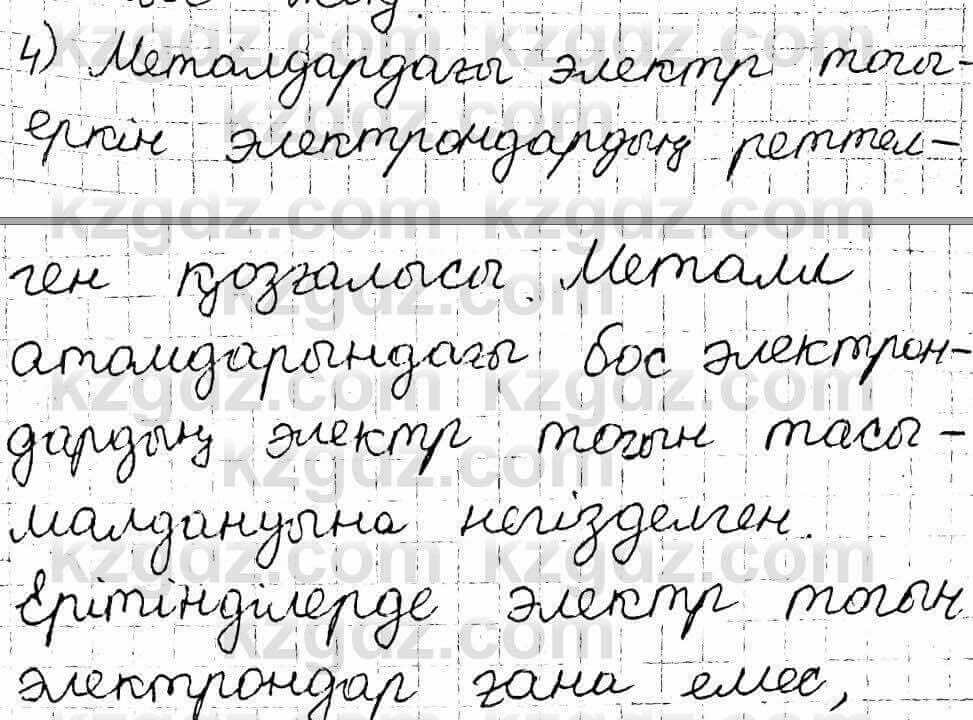 4) Металдардағы электр тогы-
еркін электрондардың реттел-
ген қозғалысы. Металл
атомдарындағы бос электрон-
дардың электр тогын тасы-
малдануына негізделген.
Ерітінділерде электр тогын
электрондар ғана емес,
kzgdz.com